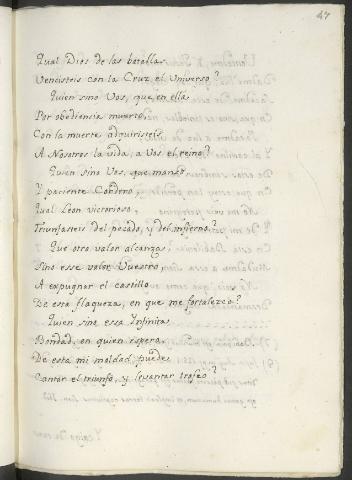 47
Qual Dios de las batallas
Vencisteis con la Cruz el Universo?
Quien sino Vos, que en ella
Por obediensia muerto,
Con la muerte adquiristeis
A Nosotros la vida, a Vos el reino?
Quien sino Vos, que manso
Y paciente Cordero,
Qual Leon victorioso,
Triunfasteis del pecado, y del infierno?
Que otro valor alcanza
Sino esse valor Vuestro
A expugnar el castillo
De esta flaqueza, en que me fortalezco?
Quien sino essa Ynfinita
Bondad, en quien espero
De esta mi maldad puede
Cantar el triunfo, y levantar trofeo?